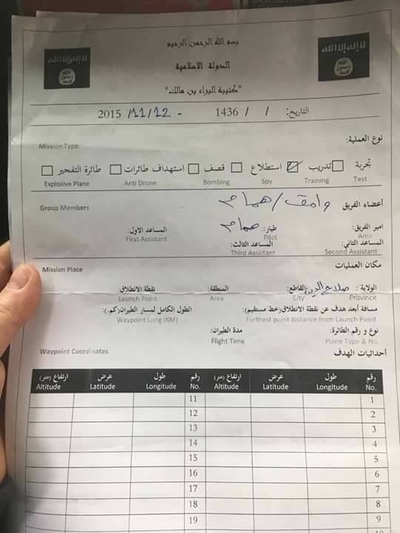 بسم الله الرحمن الرحيم
لا إله إلا الله
الدولة الإسلامية
لا إله إلا الله
"كتيبة البراء بن مالك"
التاريخ: / / 1436 - 2015 /11/12
نوع العملية:
Mission Type:
تجربة تدريب استطلاع قصف استهداف طائرات طائرة التفجير
Test Training Spy Bombing Anti Drone Explosive Plane
أعضاء الفريق
Group Members
امير الفريق: طيار: همام المساعد الاول:
Amir Pilot First Assistant
المساعد الثاني: المساعد الثالث:
Second Assistant Third Assistant
مكان العمليات
Mission Place
الولاية: صلاح الدين القاطع: المنطقة: نقطة الانطلاق
Province City Area: Launch Point
مسافة أبعد هدف عن نقطة الانطلاق(خط مستقيم): الطول الكامل لمسار الطيران(كم):
Furthest point distance from Launch Point Waypoint Long (KM)
نوع و رقم الطائرة: مدة الطيران:
Plane Type & No. Flight Time
أحداثيات الهدف
Waypoint Coordinates
رقم طول عرض ارتفاع (متر) رقم طول عرض ارتفاع (متر)
No. Longitude Latitude Altitude No. Longitude Latitude Altitude
1 11
2 12
3 13
4 14
5 15
6 16
7 17
8 18
9 19